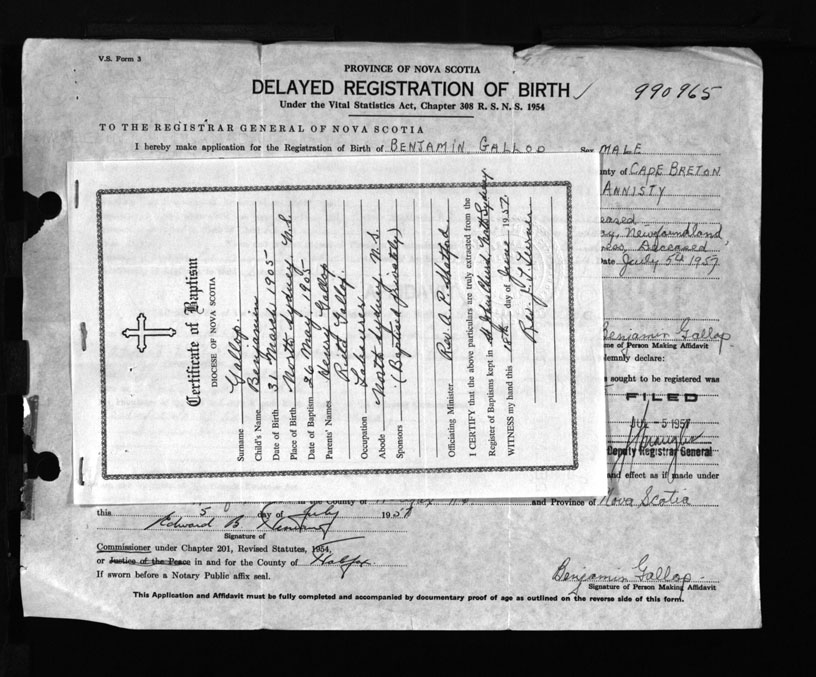 V.S. Form 3
PROVINCE OF NOVA SCOTIA
DELAYED REGISTRATION OF BIRTH
990965
Under the Vital Statistics Act, Chapter 308 R. S. N. S. 1954
TO THE REGISTRAR GENERAL OF NOVA SCOTIA
I hereby make application for the Registration of Birth of BENJAMIN GALLOP Sex MALE
nty of CAPE BRETON
ANNISTY
eased
ay, Newfoundland,
Deceased
ate July 5th 1957
Benjamin Gallop
me of Person Making Affidavit
emnly declare:
sought to be registered was
FILED
5 1957
Deputy Registrar General
and effect as if made under
Certificate of Baptism
DIOCESE OF NOVA SCOTIA
Surname Gallop
Child's Name Benjamin
Date of Birth 31 March 1905
Place of Birth North Sydney N.S.
Date of Baptism 26 May 1905
Parents' Names Henry Gallop
Ruth Gallop
Occupation Labourer
Abode North Sydney N.S.
Sponsors (Baptised Privately)
Officiating Minister Rev A. P. Shatford
I CERTIFY that the above particulars are truly extracted from the
Register of Baptisms kept in St John Church North Sydney
WITNESS my hand this 18th day of June 1957
Rev.
in the County of and Province of Nova Scotia
this 5 day of July 1957
Edward B
Signature of
Commissioner under Chapter 201, Revised Statutes, 1954,
or Justice of the Peace in and for the County of Halifax
If sworn before a Notary Public affix seal.
Benjamin Gallop
Signature of Person Making Affidavit
This Application and Affidavit must be fully completed and accompanied by documentary proof of age as outlined on the reverse side of this form.